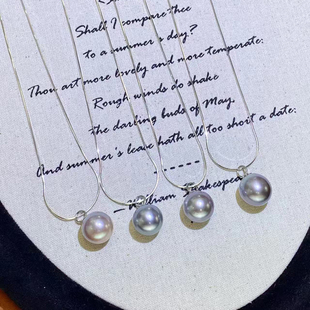 Shall I compare thee
to a summer's day?
Thou art more lovely and more temperate:
Rough winds do shake
the darling buds of May,
And summer's leave hath all too short a date:
------
— William Shakespea